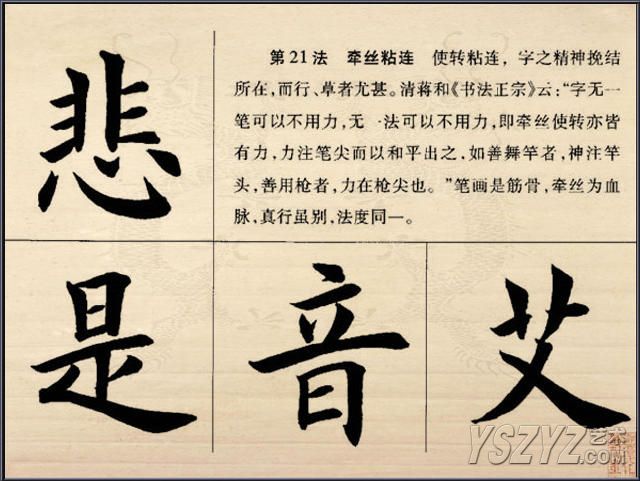 悲
第21法　牵丝粘连　使转粘连，字之精神挽结
所在，而行、草者尤甚。清蒋和《书法正宗》云：“字无一
笔可以不用力，无一法可以不用力，即牵丝使转亦皆
有力，力注笔尖而以和平出之，如善舞竿者，神注竿
头，善用枪者，力在枪尖也。”笔画是筋骨，牵丝为血
脉，真行虽别，法度同一。
是 音 艾
YSZYZ艺术
.COM